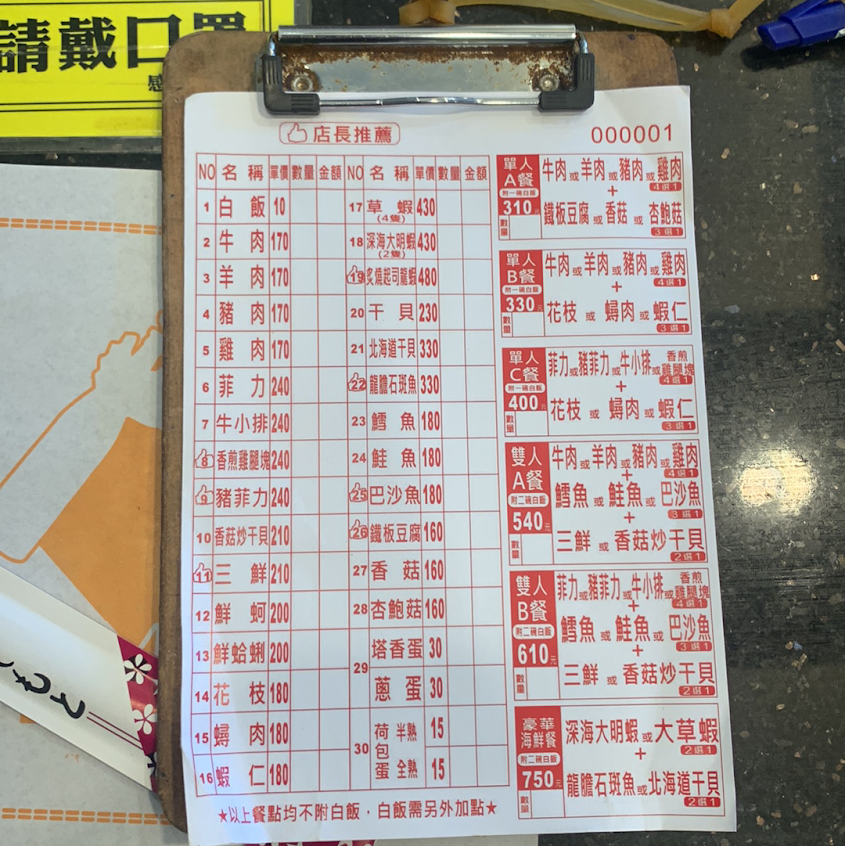 請戴口罩
感
店長推薦
000001
NO 名稱 單價 數量 金額 NO 名稱 單價 數量 金額
1 白飯 10
2 牛肉 170
3 羊肉 170
4 豬肉 170
5 雞肉 170
6 菲力 240
7 牛小排 240
8 香煎雞腿塊 240
9 豬菲力 240
10 香菇炒干貝 210
11 三鮮 210
12 鮮蚵 200
13 鮮蛤蜊 200
14 花枝 180
15 蟳肉 180
16 蝦仁 180
17 草蝦 430
(4隻)
18 深海大明蝦 430
(2隻)
19 炙燒起司龍蝦 480
20 干貝 230
21 北海道干貝 330
22 龍膽石斑魚 330
23 鱈魚 180
24 鮭魚 180
25 巴沙魚 180
26 鐵板豆腐 160
27 香菇 160
28 杏鮑菇 160
29 塔香蛋 30
蔥蛋 30
30 荷包蛋 半熟 15
全熟 15
單人
A餐
附一碗白飯
310元
數量
牛肉或羊肉或豬肉或雞肉
4選1
+
鐵板豆腐或香菇或杏鮑菇
3選1
單人
B餐
附一碗白飯
330元
數量
牛肉或羊肉或豬肉或雞肉
4選1
+
花枝或蟳肉或蝦仁
3選1
單人
C餐
附一碗白飯
400元
數量
菲力或豬菲力或牛小排或香煎雞腿塊
4選1
+
花枝或蟳肉或蝦仁
3選1
雙人
A餐
附二碗白飯
540元
數量
牛肉或羊肉或豬肉或雞肉
4選1
+
鱈魚或鮭魚或巴沙魚
3選1
+
三鮮或香菇炒干貝
2選1
雙人
B餐
附二碗白飯
610元
數量
菲力或豬菲力或牛小排或香煎雞腿塊
4選1
+
鱈魚或鮭魚或巴沙魚
3選1
+
三鮮或香菇炒干貝
2選1
豪華
海鮮餐
附二碗白飯
750元
數量
深海大明蝦或大草蝦
2選1
+
龍膽石斑魚或北海道干貝
2選1
★以上餐點均不附白飯，白飯需另外加點★